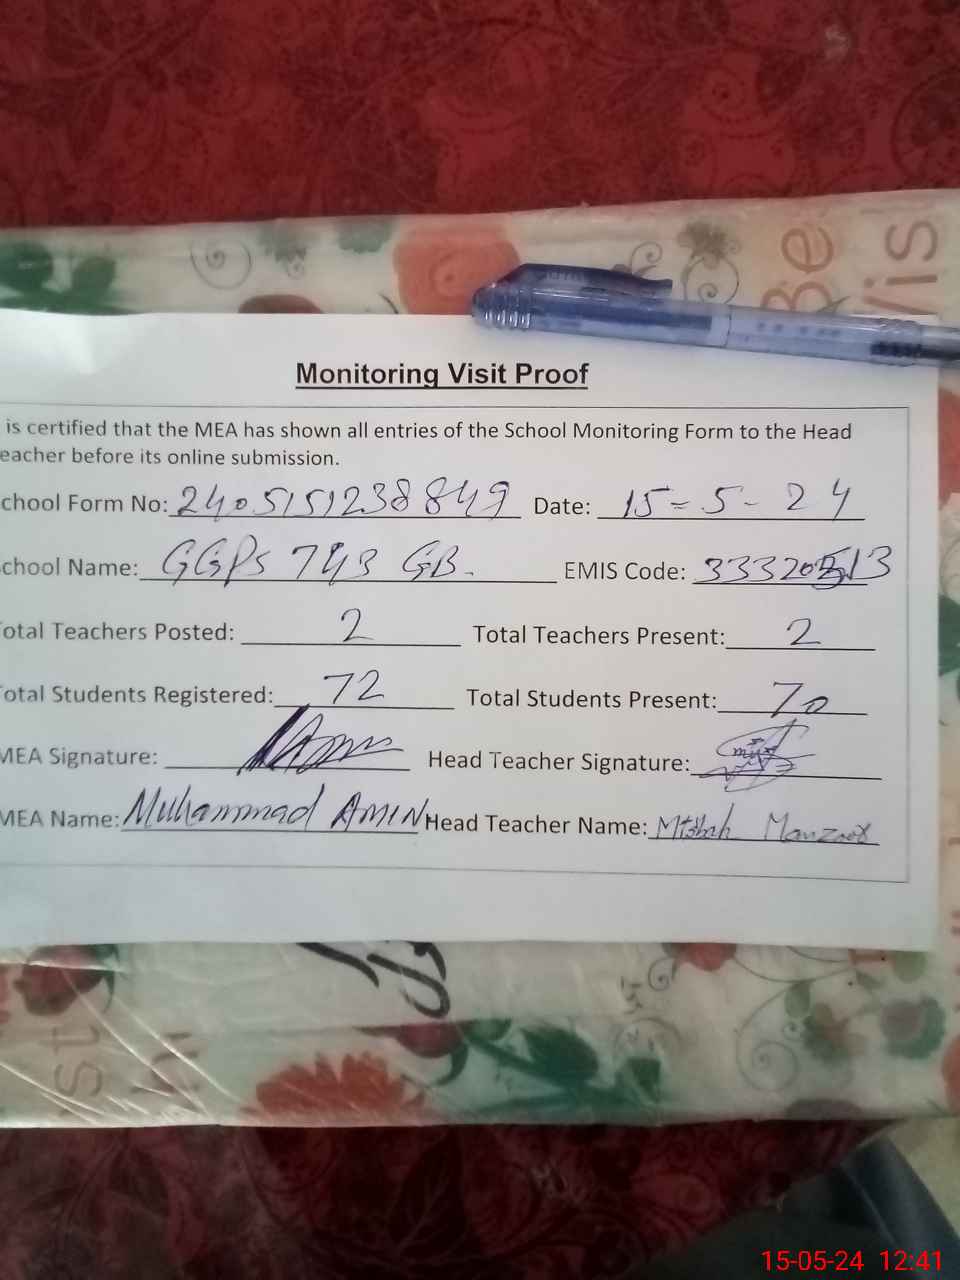 Be
Vis
Monitoring Visit Proof
is certified that the MEA has shown all entries of the School Monitoring Form to the Head
eacher before its online submission.
chool Form No: 2405151238849 Date: 15-5-24
chool Name: GGPS 743 GB. EMIS Code:
otal Teachers Posted: 2 Total Teachers Present: 2
otal Students Registered: 72 Total Students Present: 70
MEA Signature: Head Teacher Signature:
MEA Name: Muhammad AMIN Head Teacher Name: Misbah Manzoor
st
15-05-24 12:41